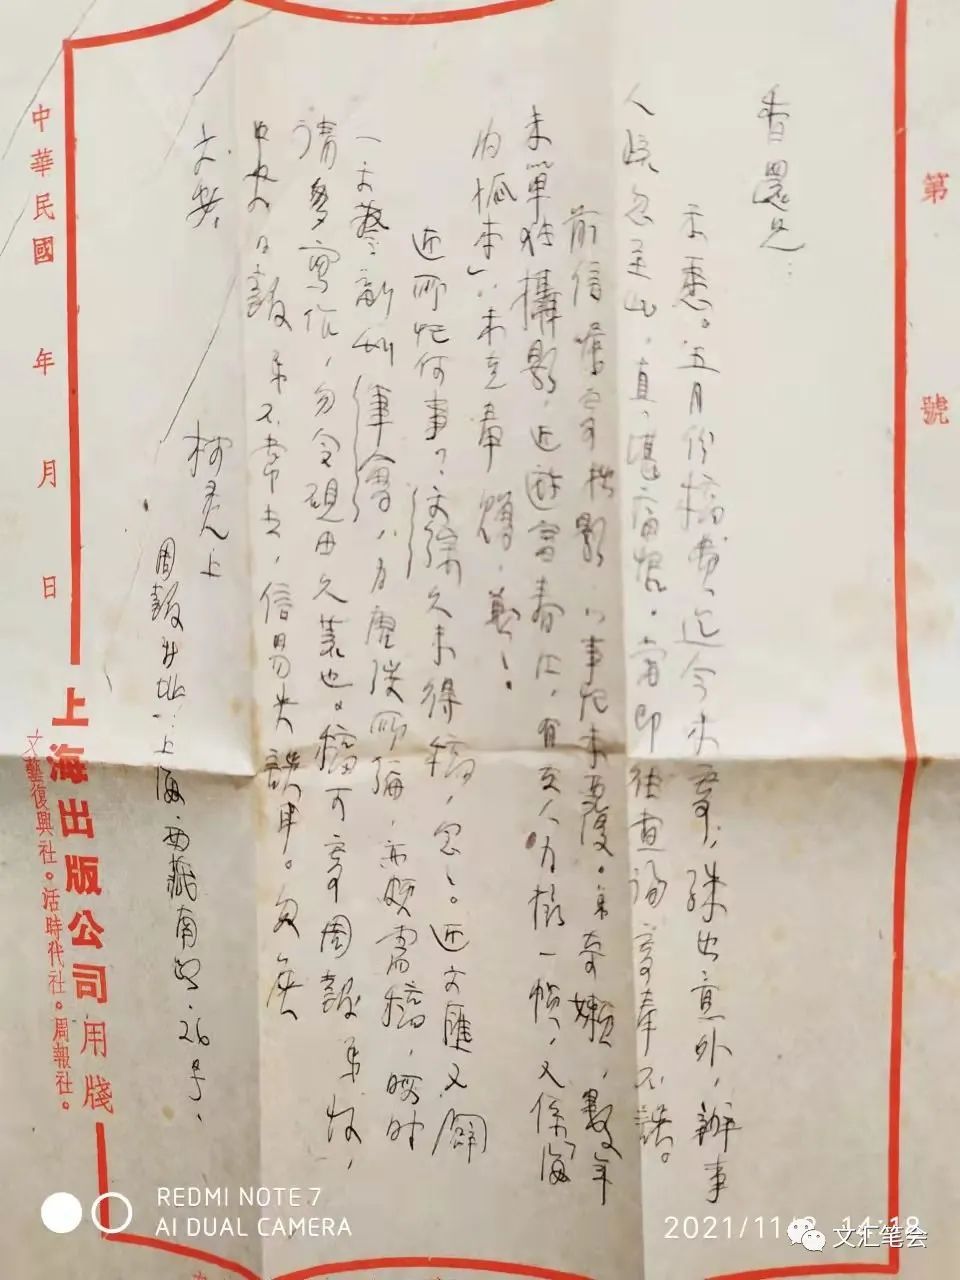 第　號
香還兄：
示悉。五月份稿費、迄今未寄，殊出意外，辦事
人疏忽至此，真堪痛恨。當即往查詢寄奉不誤。
前信囑寄攝影，以事忙未覆。弟奇嬾，數年
未單独攝影，近遊富春江，有友人为攝一幀，又係「海
內孤本」，未克奉贈，歉！
近所忙何事？久未得稿，念！。近文匯又闢
一文藝副刊「筆會」，为唐弢所編，亦頗需稿，暇时
请多寫作，勿令硯田久蕪也。稿可寄周報弟收，
中央日報弟不常去，信易失誤耳。匆
文安
柯灵上
周報社址：上海西藏南路26号.
中華民國　年　月　日
上海出版公司用牋
文藝復興社。活時代社。周報社。
REDMI NOTE 7
AI DUAL CAMERA
2021/11/ 14:18
文汇笔会